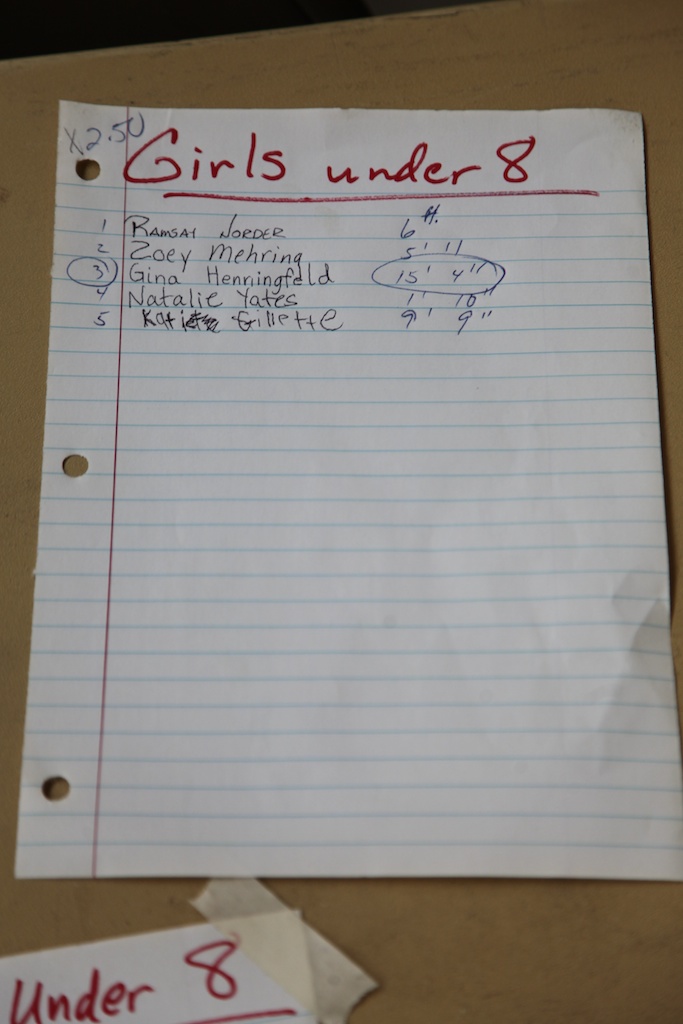 X2.50
Girls under 8
1 RAMSAY NORDER 6 ft.
2 Zoey Mehring 5' 11
3 Gina Henningfeld 15' 4"
4 Natalie Yates 1' 10"
5 Katie Gillette 9' 9"
Under 8